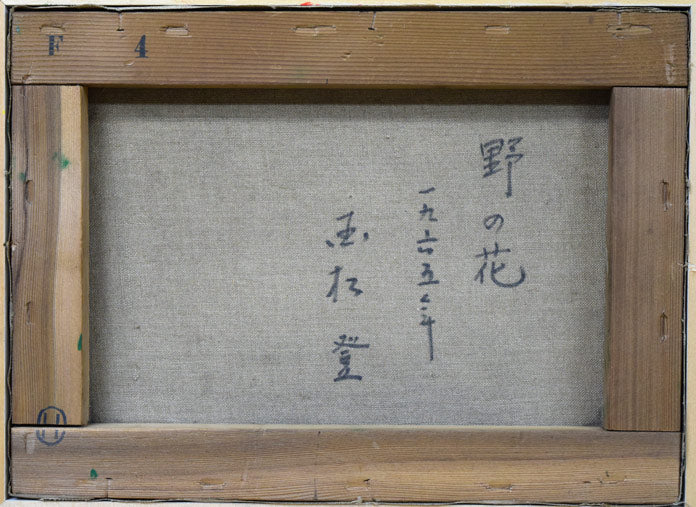 F 4
野の花
一九六五年
国松登